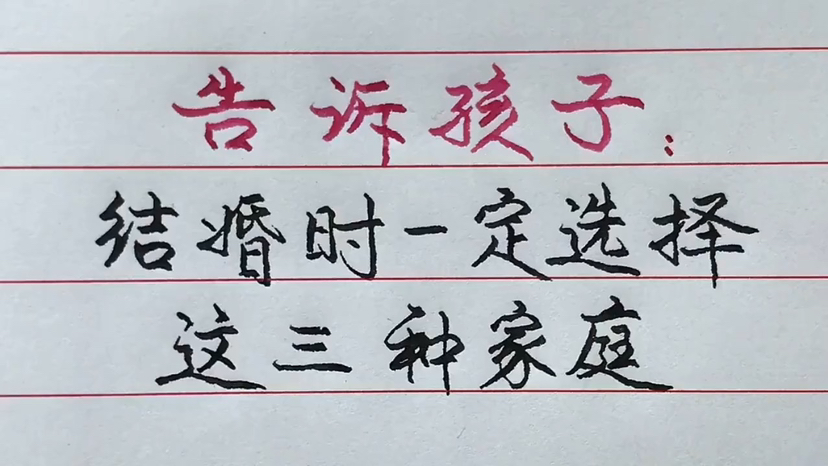 告诉孩子：
结婚时一定选择
这三种家庭